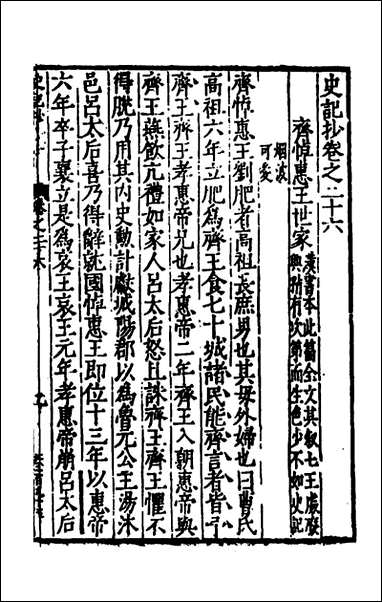 史記抄卷之二十六
齊悼惠王世家
漢書本此篇全文其叙七王處發
興附有次第而生色少不如史記
烟波
可愛
齊悼惠王劉肥者高祖長庶男也其母外婦也曰曹氏
高祖六年立肥爲齊王食七十城諸民能齊言者皆予
齊王齊王孝惠帝兄也孝惠帝二年齊王入朝惠帝與
齊王燕飲亢禮如家人呂太后怒且誅齊王齊王懼不
得脫乃用其內史勳計獻城陽郡以爲魯元公主湯沐
邑呂太后喜乃得辭就國悼惠王即位十三年以惠帝
六年卒子襄立是爲哀王哀王元年孝惠帝崩呂太后
史記抄
卷之二十六